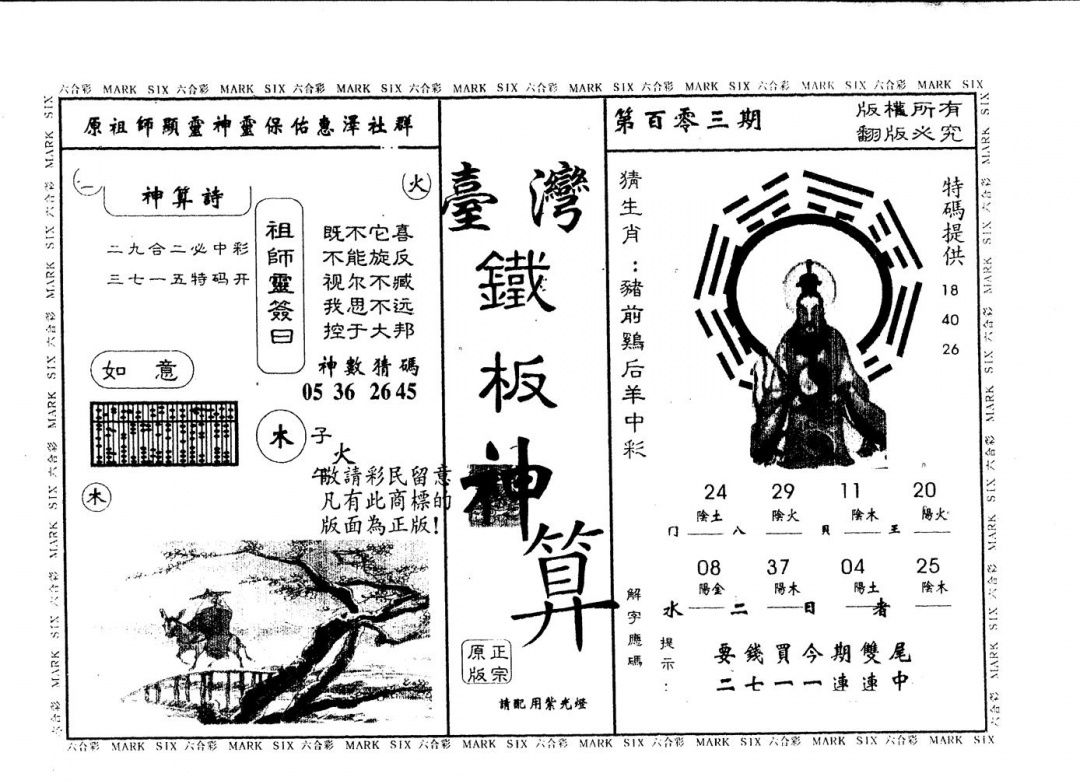 六合彩 MARK SIX 六合彩 MARK SIX 六合彩 MARK SIX 六合彩 MARK SIX 六合彩 MARK SIX 六合彩 MARK SIX 六合彩 MARK SIX 六合彩 MARK SIX
原祖師顯靈神靈保佑惠澤社群
神算詩
二九合二必中彩
三七一五特码开
火
祖師靈簽曰
既不它喜
不能旋反
视尔不臧
我思不远
控于大邦
神數猜碼
05 36 26 45
如意
木
子
火
午
木
敬請彩民留意
凡有此商標的
版面為正版!
臺灣
鐵
板
神
算
正宗
原版
請配用紫光燈
第百零三期
版權所有
翻版必究
猜生肖:豬前鷄后羊中彩
特碼提供
18
40
26
24 29 11 20
陰土 陰火 陰木 陽火
门 八 貝 王
08 37 04 25
陽金 陽木 陽土 陰木
水 二 日 者
解字應碼
提示:
要錢買今期雙尾
二七一一連連中
六合彩 MARK SIX 六合彩 MARK SIX 六合彩 MARK SIX 六合彩 MARK SIX 六合彩 MARK SIX 六合彩 MARK SIX 六合彩 MARK SIX 六合彩 MARK SIX